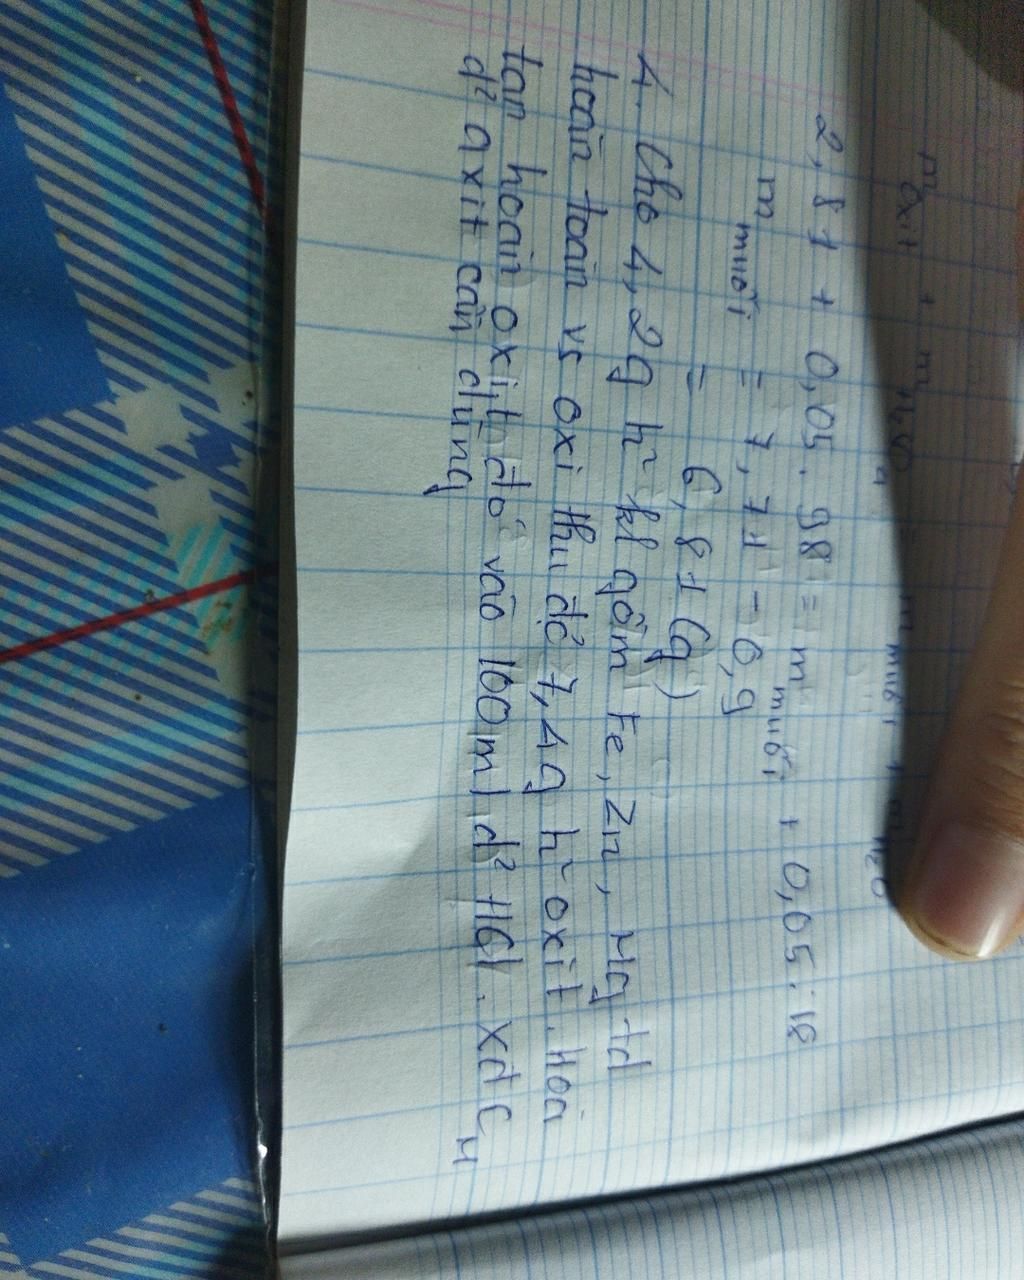 m oxit + m H₂SO₄ = m muối + m H₂O
2,81 + 0,05 . 98 = m muối + 0,05 . 18
m muối = 7,71 - 0,9
= 6,81 (g)
4. Cho 4,2g h² kl gồm Fe, Zn, Mg td
hoàn toàn vs oxi thu đc 7,4g h² oxit. Hoà
tan hoàn oxit đó vào 100ml d² HCl. xđ C M
d² axit cần dùng